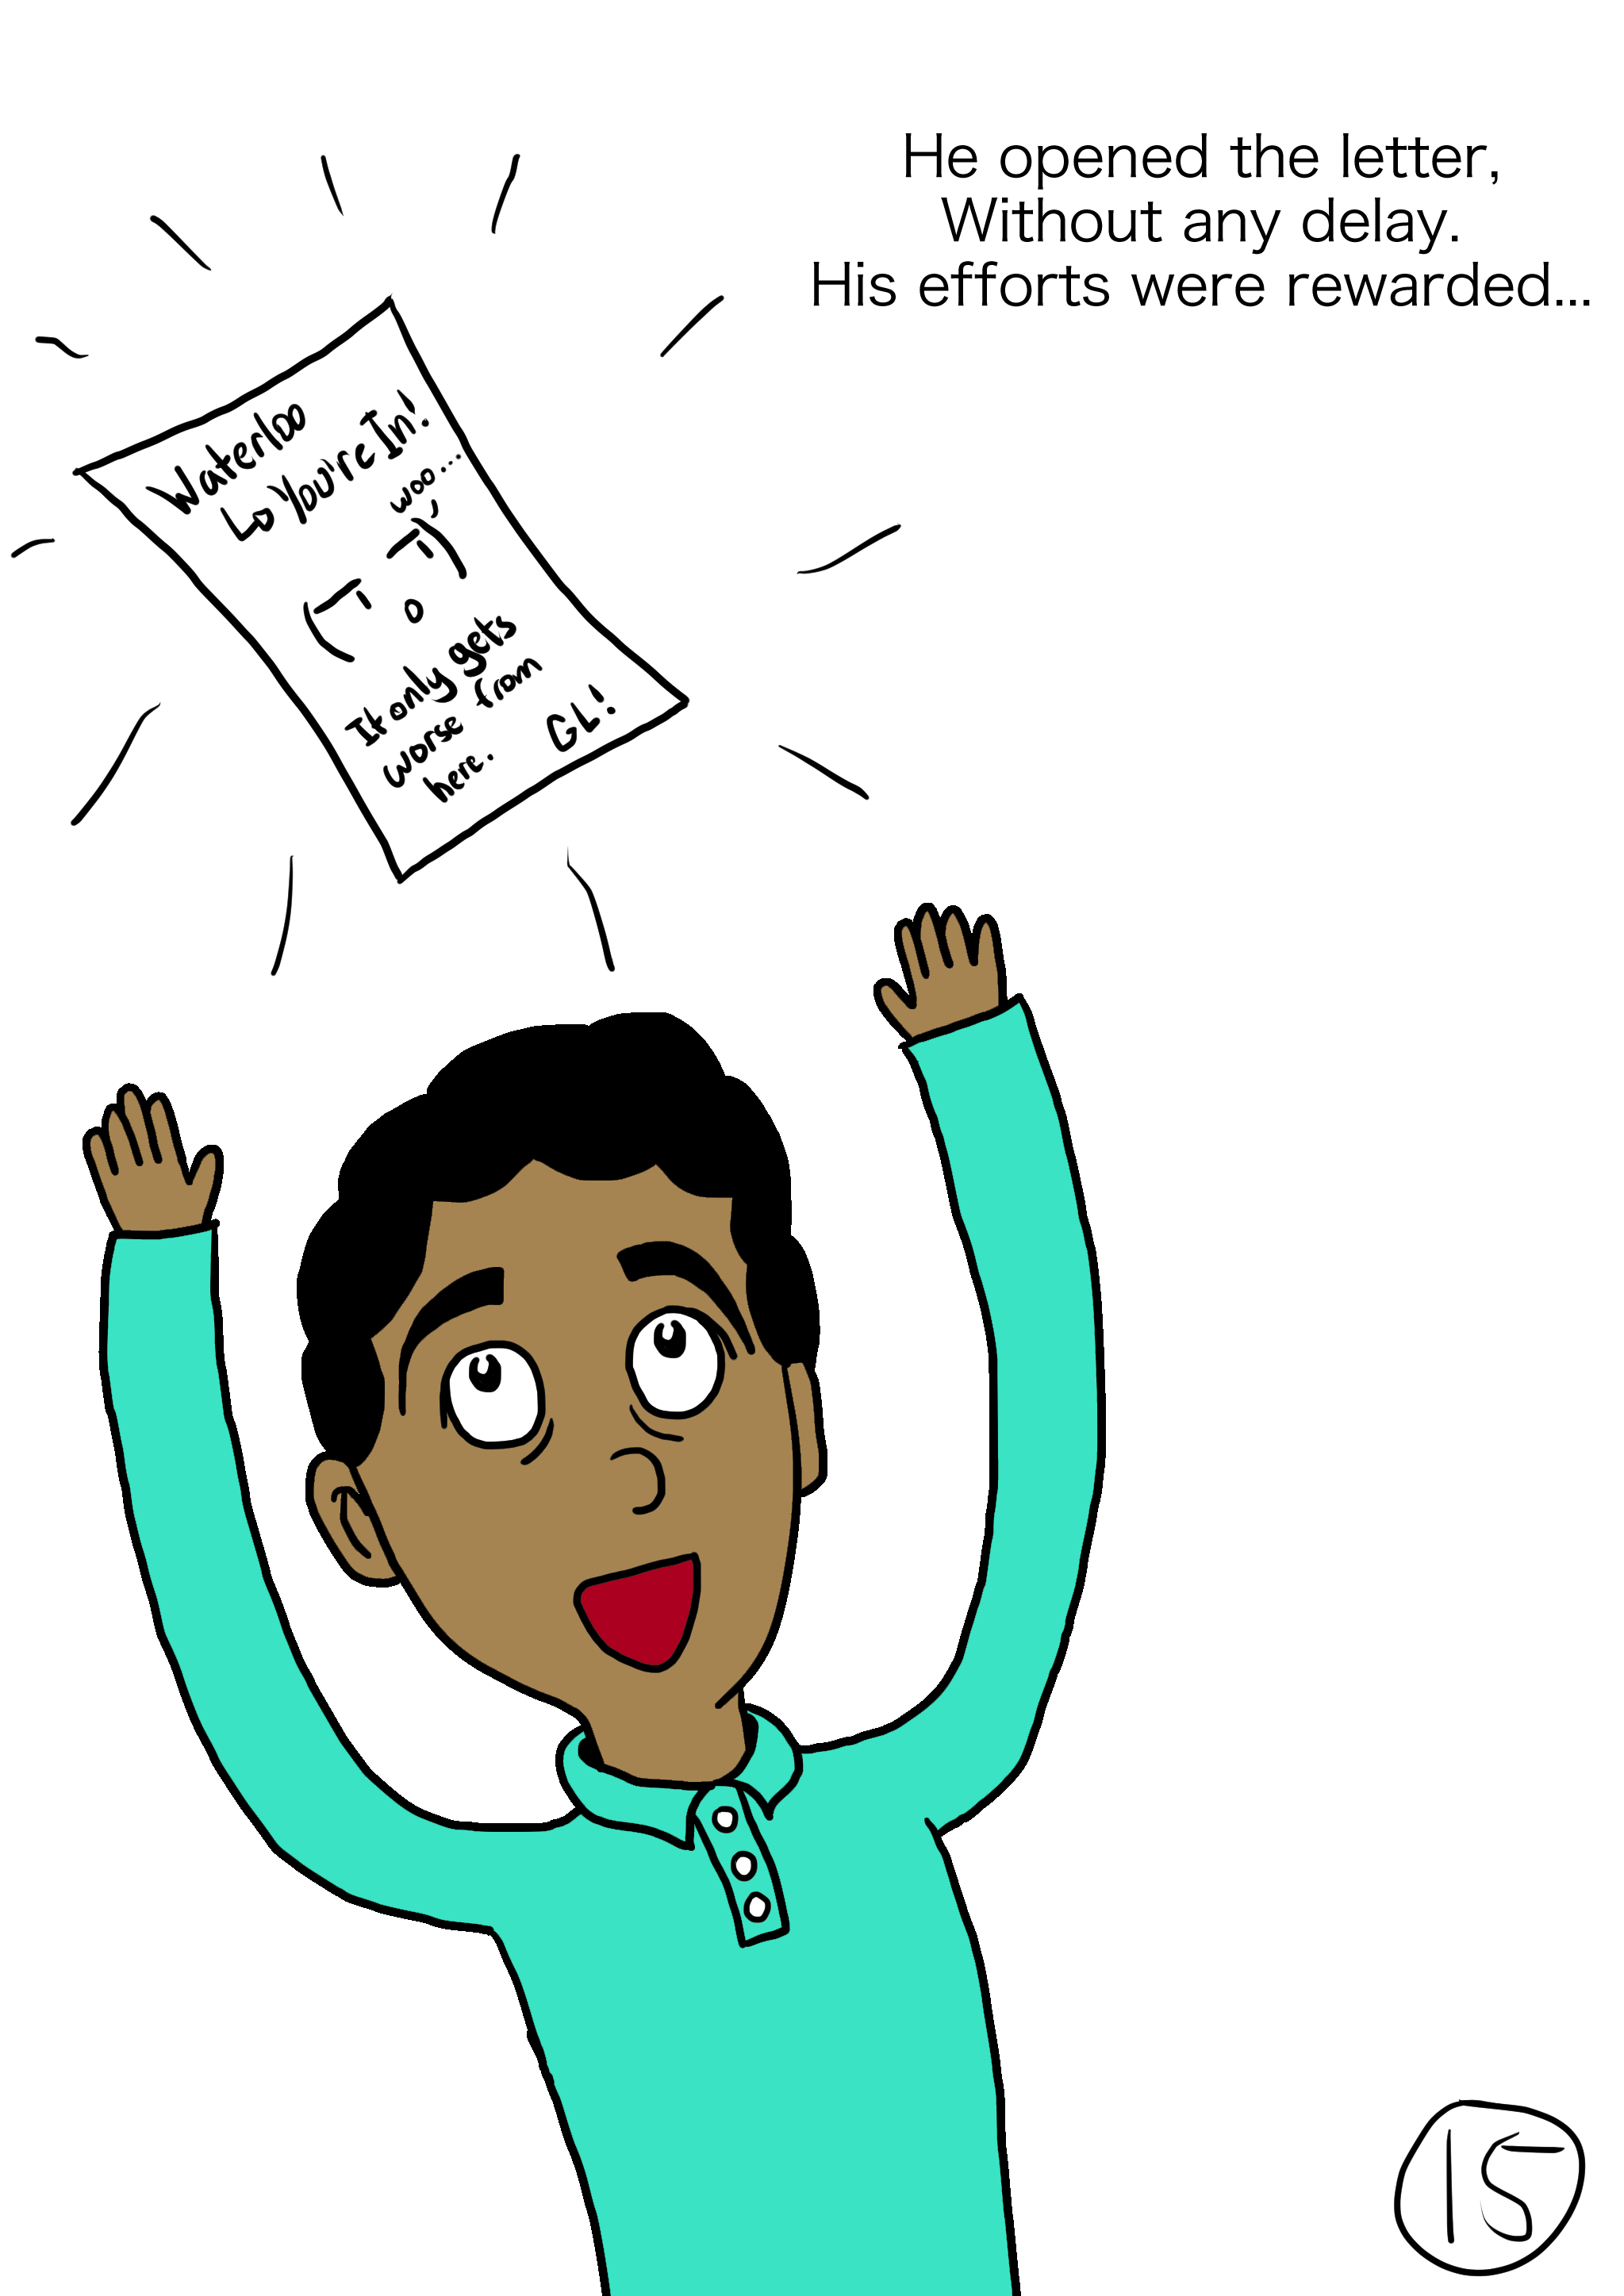 He opened the letter,
Without any delay.
His efforts were rewarded...
Waterloo
↳ You're In!
woo...
It only gets
worse from
here.
GL!
15